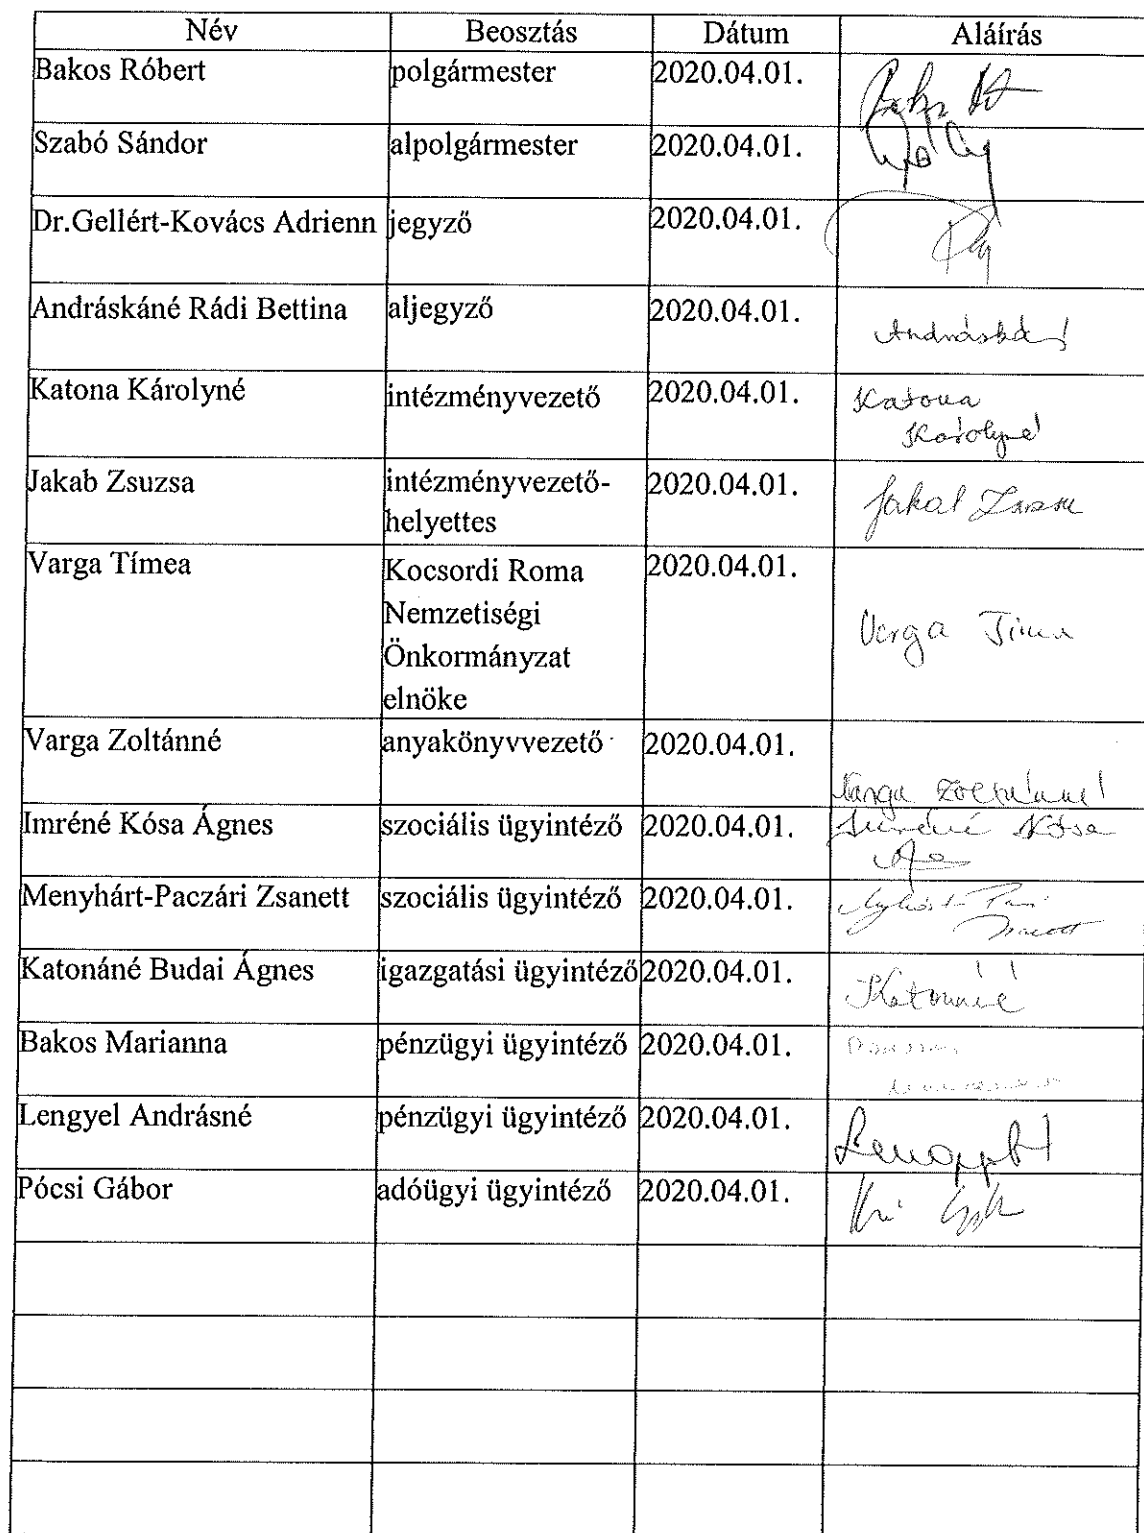 Név Beosztás Dátum Aláírás
Bakos Róbert polgármester 2020.04.01.
Szabó Sándor alpolgármester 2020.04.01.
Dr.Gellért-Kovács Adrienn jegyző 2020.04.01.
Andráskáné Rádi Bettina aljegyző 2020.04.01.
Katona Károlyné intézményvezető 2020.04.01. Katona
Károlyné
Jakab Zsuzsa intézményvezető- 2020.04.01. Jakab Zsuzsa
helyettes
Varga Tímea Kocsordi Roma 2020.04.01.
Nemzetiségi
Varga Tímea
Önkormányzat
elnöke
Varga Zoltánné anyakönyvvezető 2020.04.01.
Varga Zoltánné
Imréné Kósa Ágnes szociális ügyintéző 2020.04.01. Imréné Kósa
Menyhárt-Paczári Zsanett szociális ügyintéző 2020.04.01.
Katonáné Budai Ágnes igazgatási ügyintéző 2020.04.01. Katonáné
Bakos Marianna pénzügyi ügyintéző 2020.04.01.
Lengyel Andrásné pénzügyi ügyintéző 2020.04.01.
Pócsi Gábor adóügyi ügyintéző 2020.04.01.